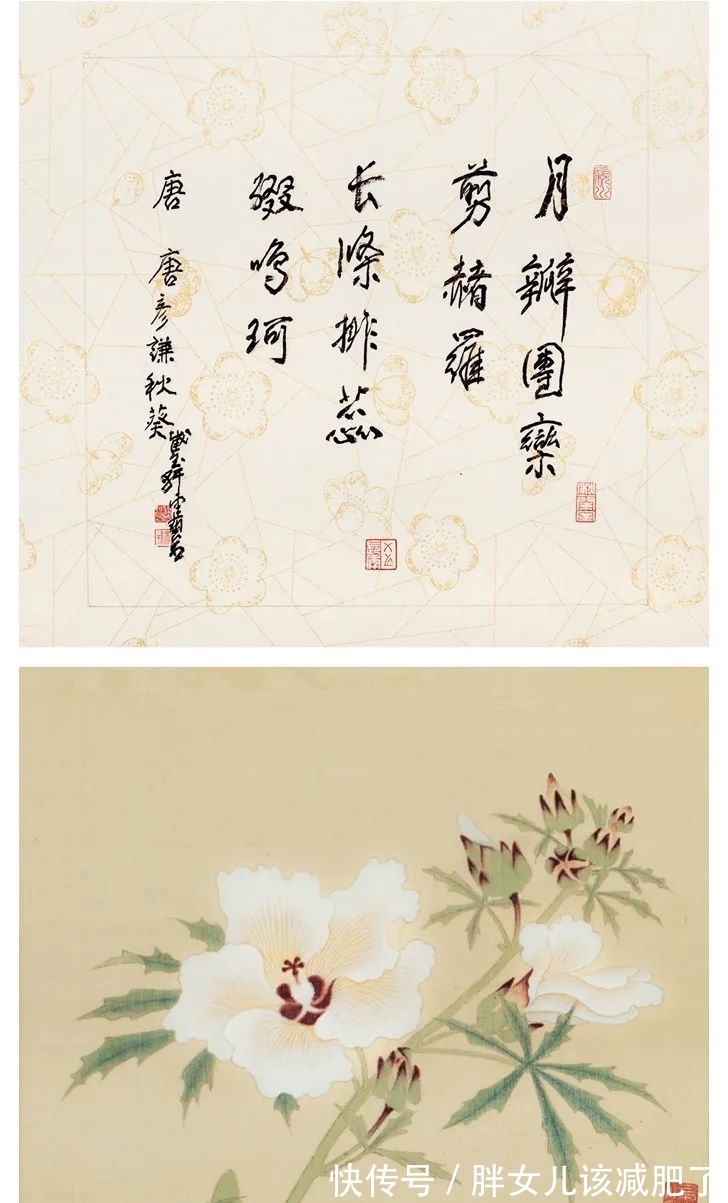 月瓣團欒
剪赭羅
长條排蕊
綴鳴珂
唐 唐彦謙秋葵
快传号 / 胖女儿该减肥了